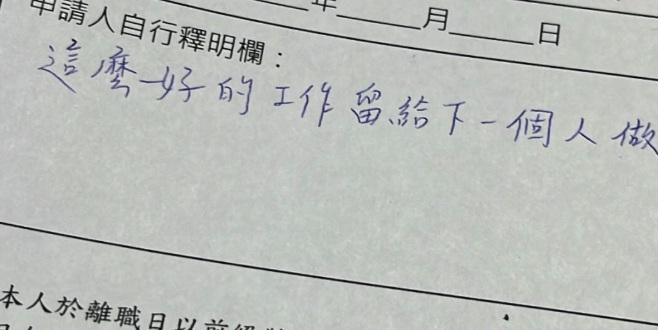 年______月______日
申請人自行釋明欄：
這麼好的工作留給下一個人做
本人於離職日以前